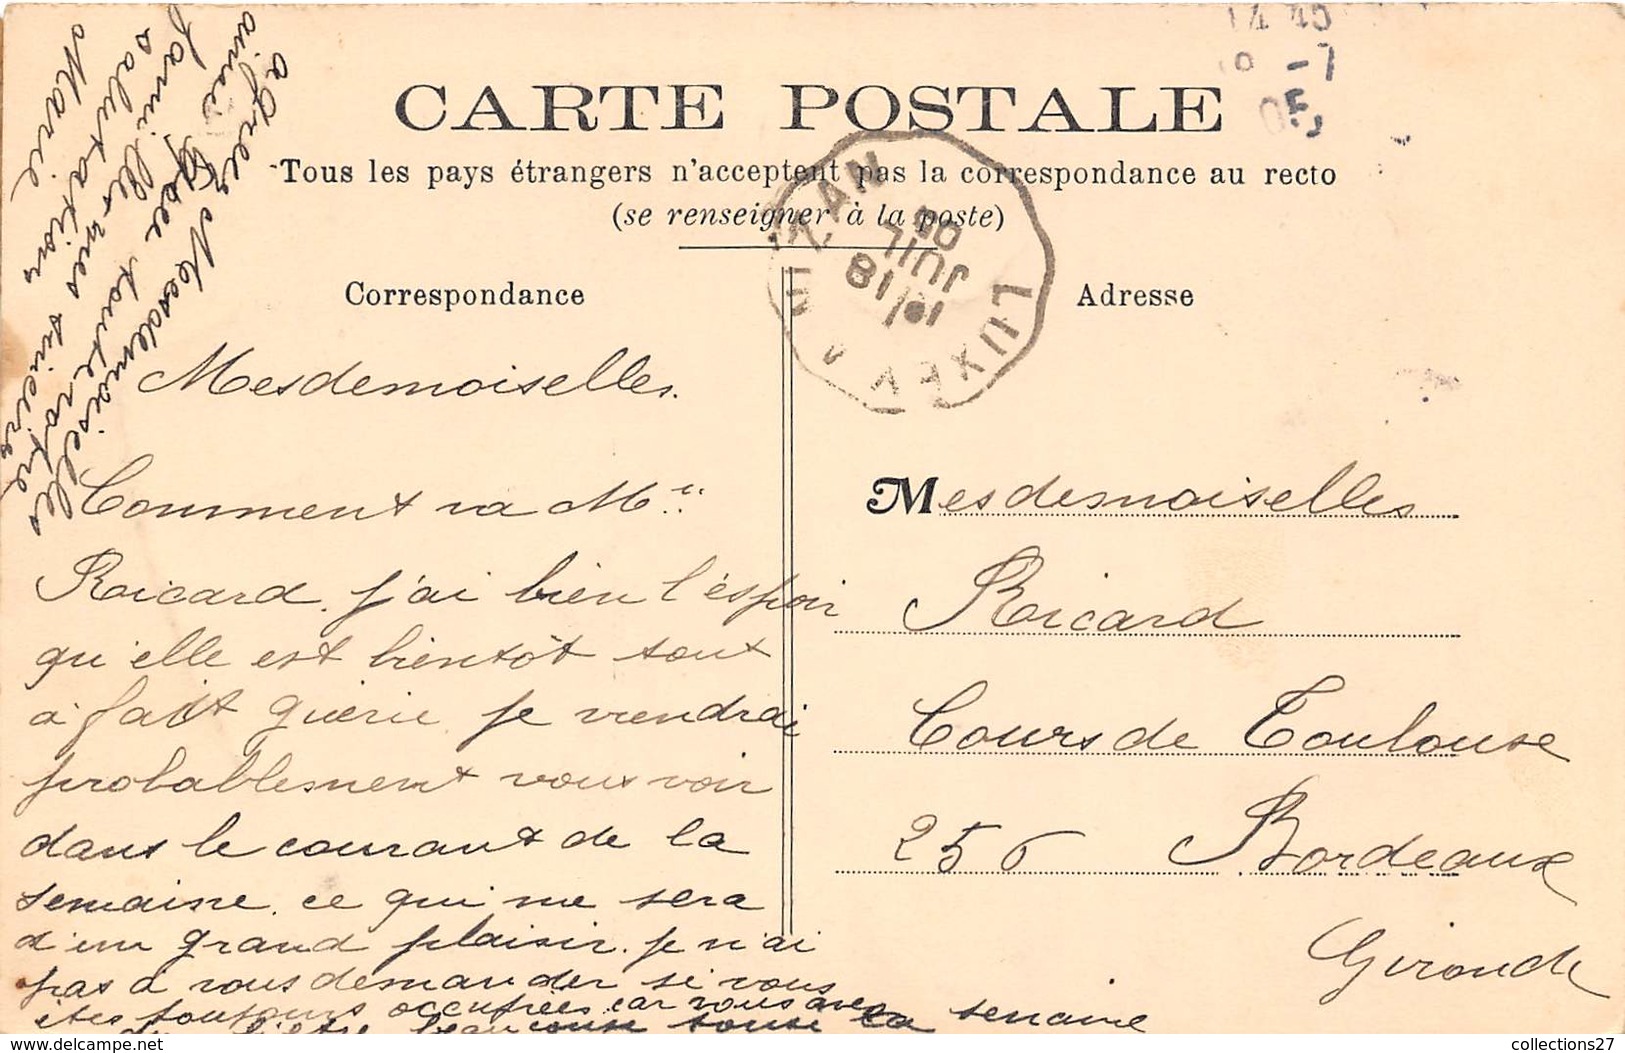 CARTE POSTALE
Tous les pays étrangers n'acceptent pas la correspondance au recto
(se renseigner à la poste)
Correspondance
Mesdemoiselles.
Comment va Mlle
Ricard. j'ai bien l'éspoir
qu'elle est bientôt tout
à fait guérie je viendrai
probablement vous voir
dans le courant de la
semaine. ce qui me sera
d'un grand plaisir. je n'ai
pas à vous demander si vous
êtes toujours occupées car vous avez
la semaine
agréez Mesdemoiselles
ainsi que toute votre
famille mes sincères
salutations
Marie
Adresse
Mesdemoiselles
Ricard
Cours de Toulouse
256 Bordeaux
Gironde
LUXEY A
18 JUIL
collections27